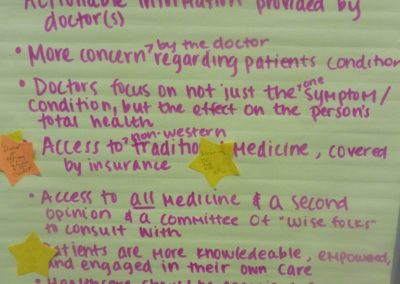 Actionable information provided by
doctor(s)
• More concern ? by the doctor
regarding patients condition
• Doctors focus on not just the one
symptom/
condition, but the effect on the person's
total health
Access to non-western
? traditio Medicine, covered
by insurance
• Access to all Medicine & a second
opinion & a committee of "wise folks"
to consult with
Patients are more knowledeable, empowered,
and engaged in their own care
• Healthcare should be